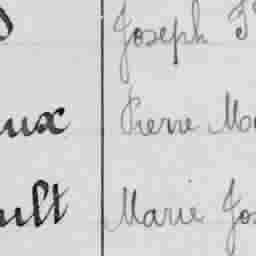 Joseph
aux Pierre
ult Marie Jos